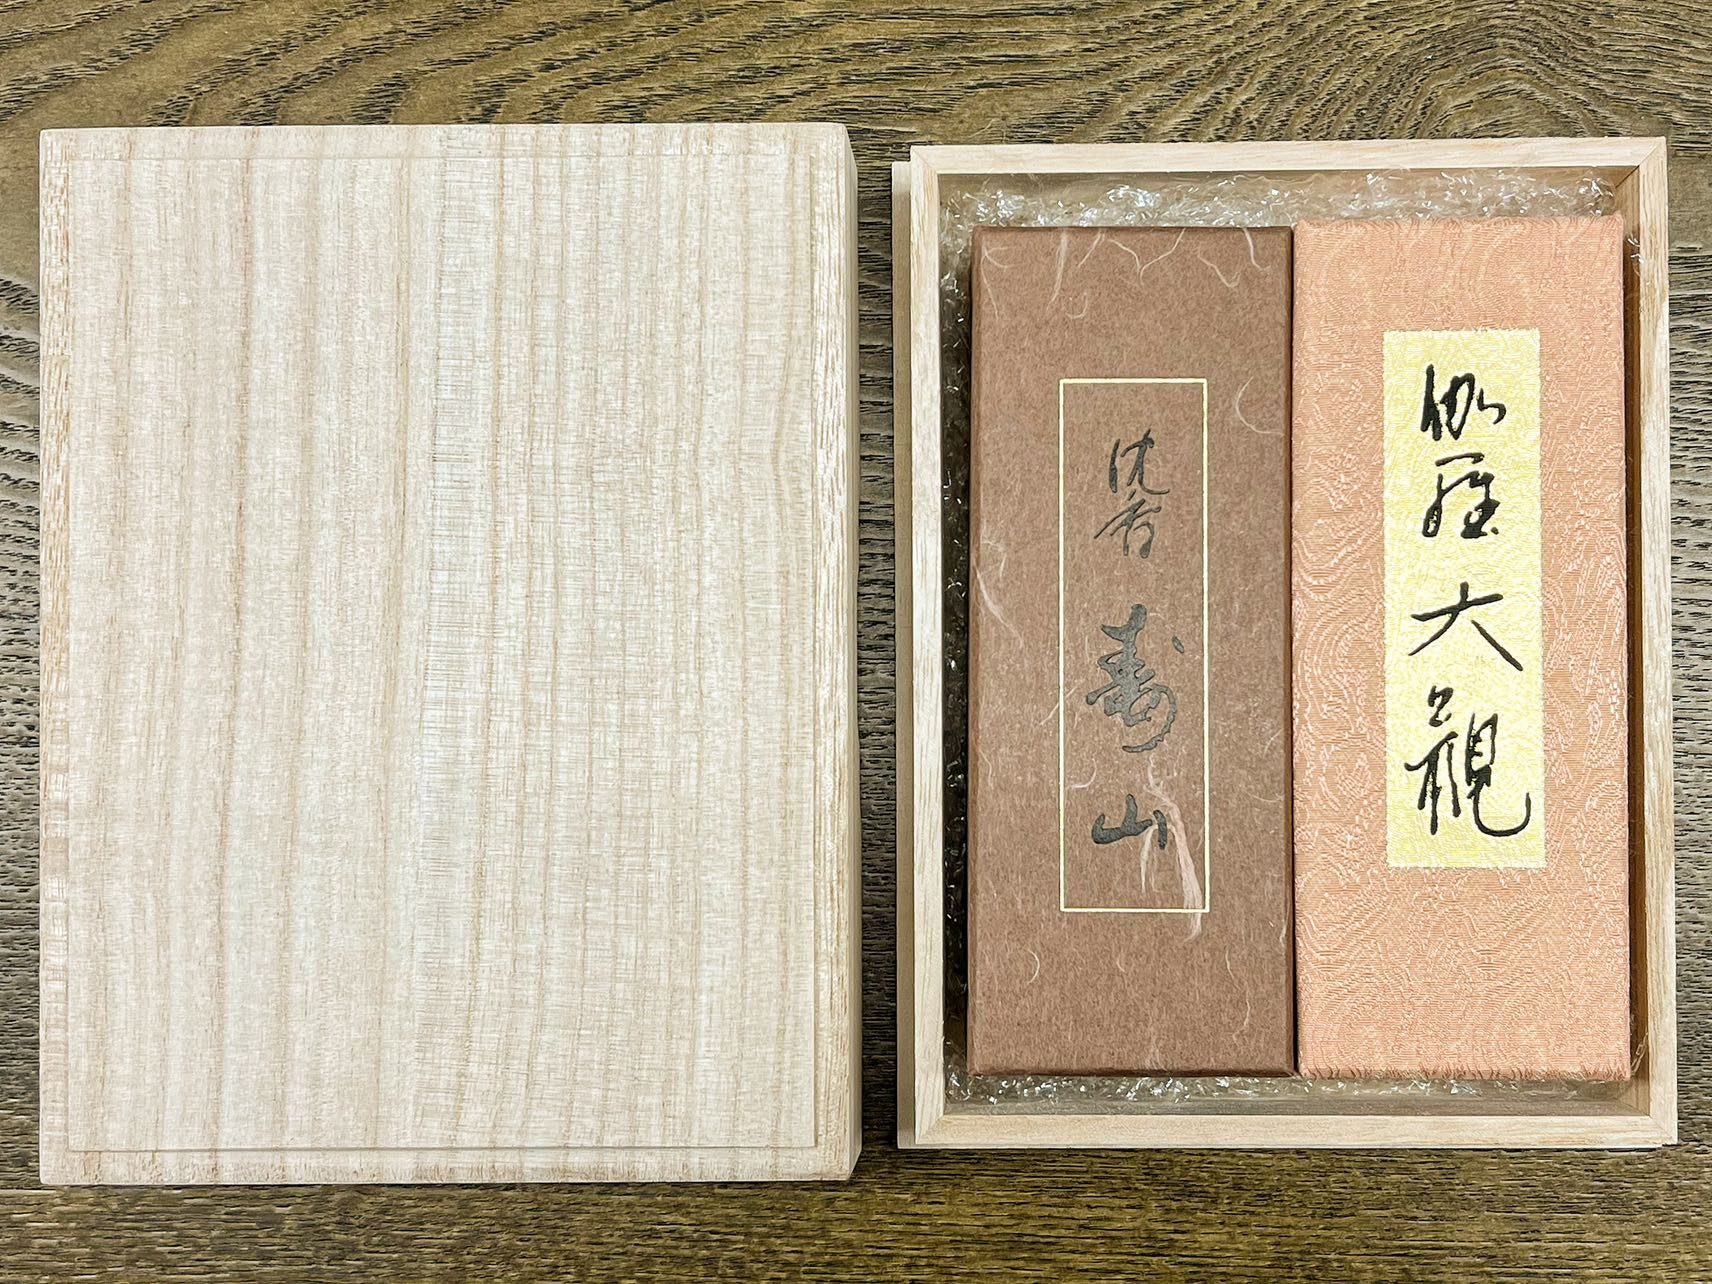 伽羅大観
沈香 寿山